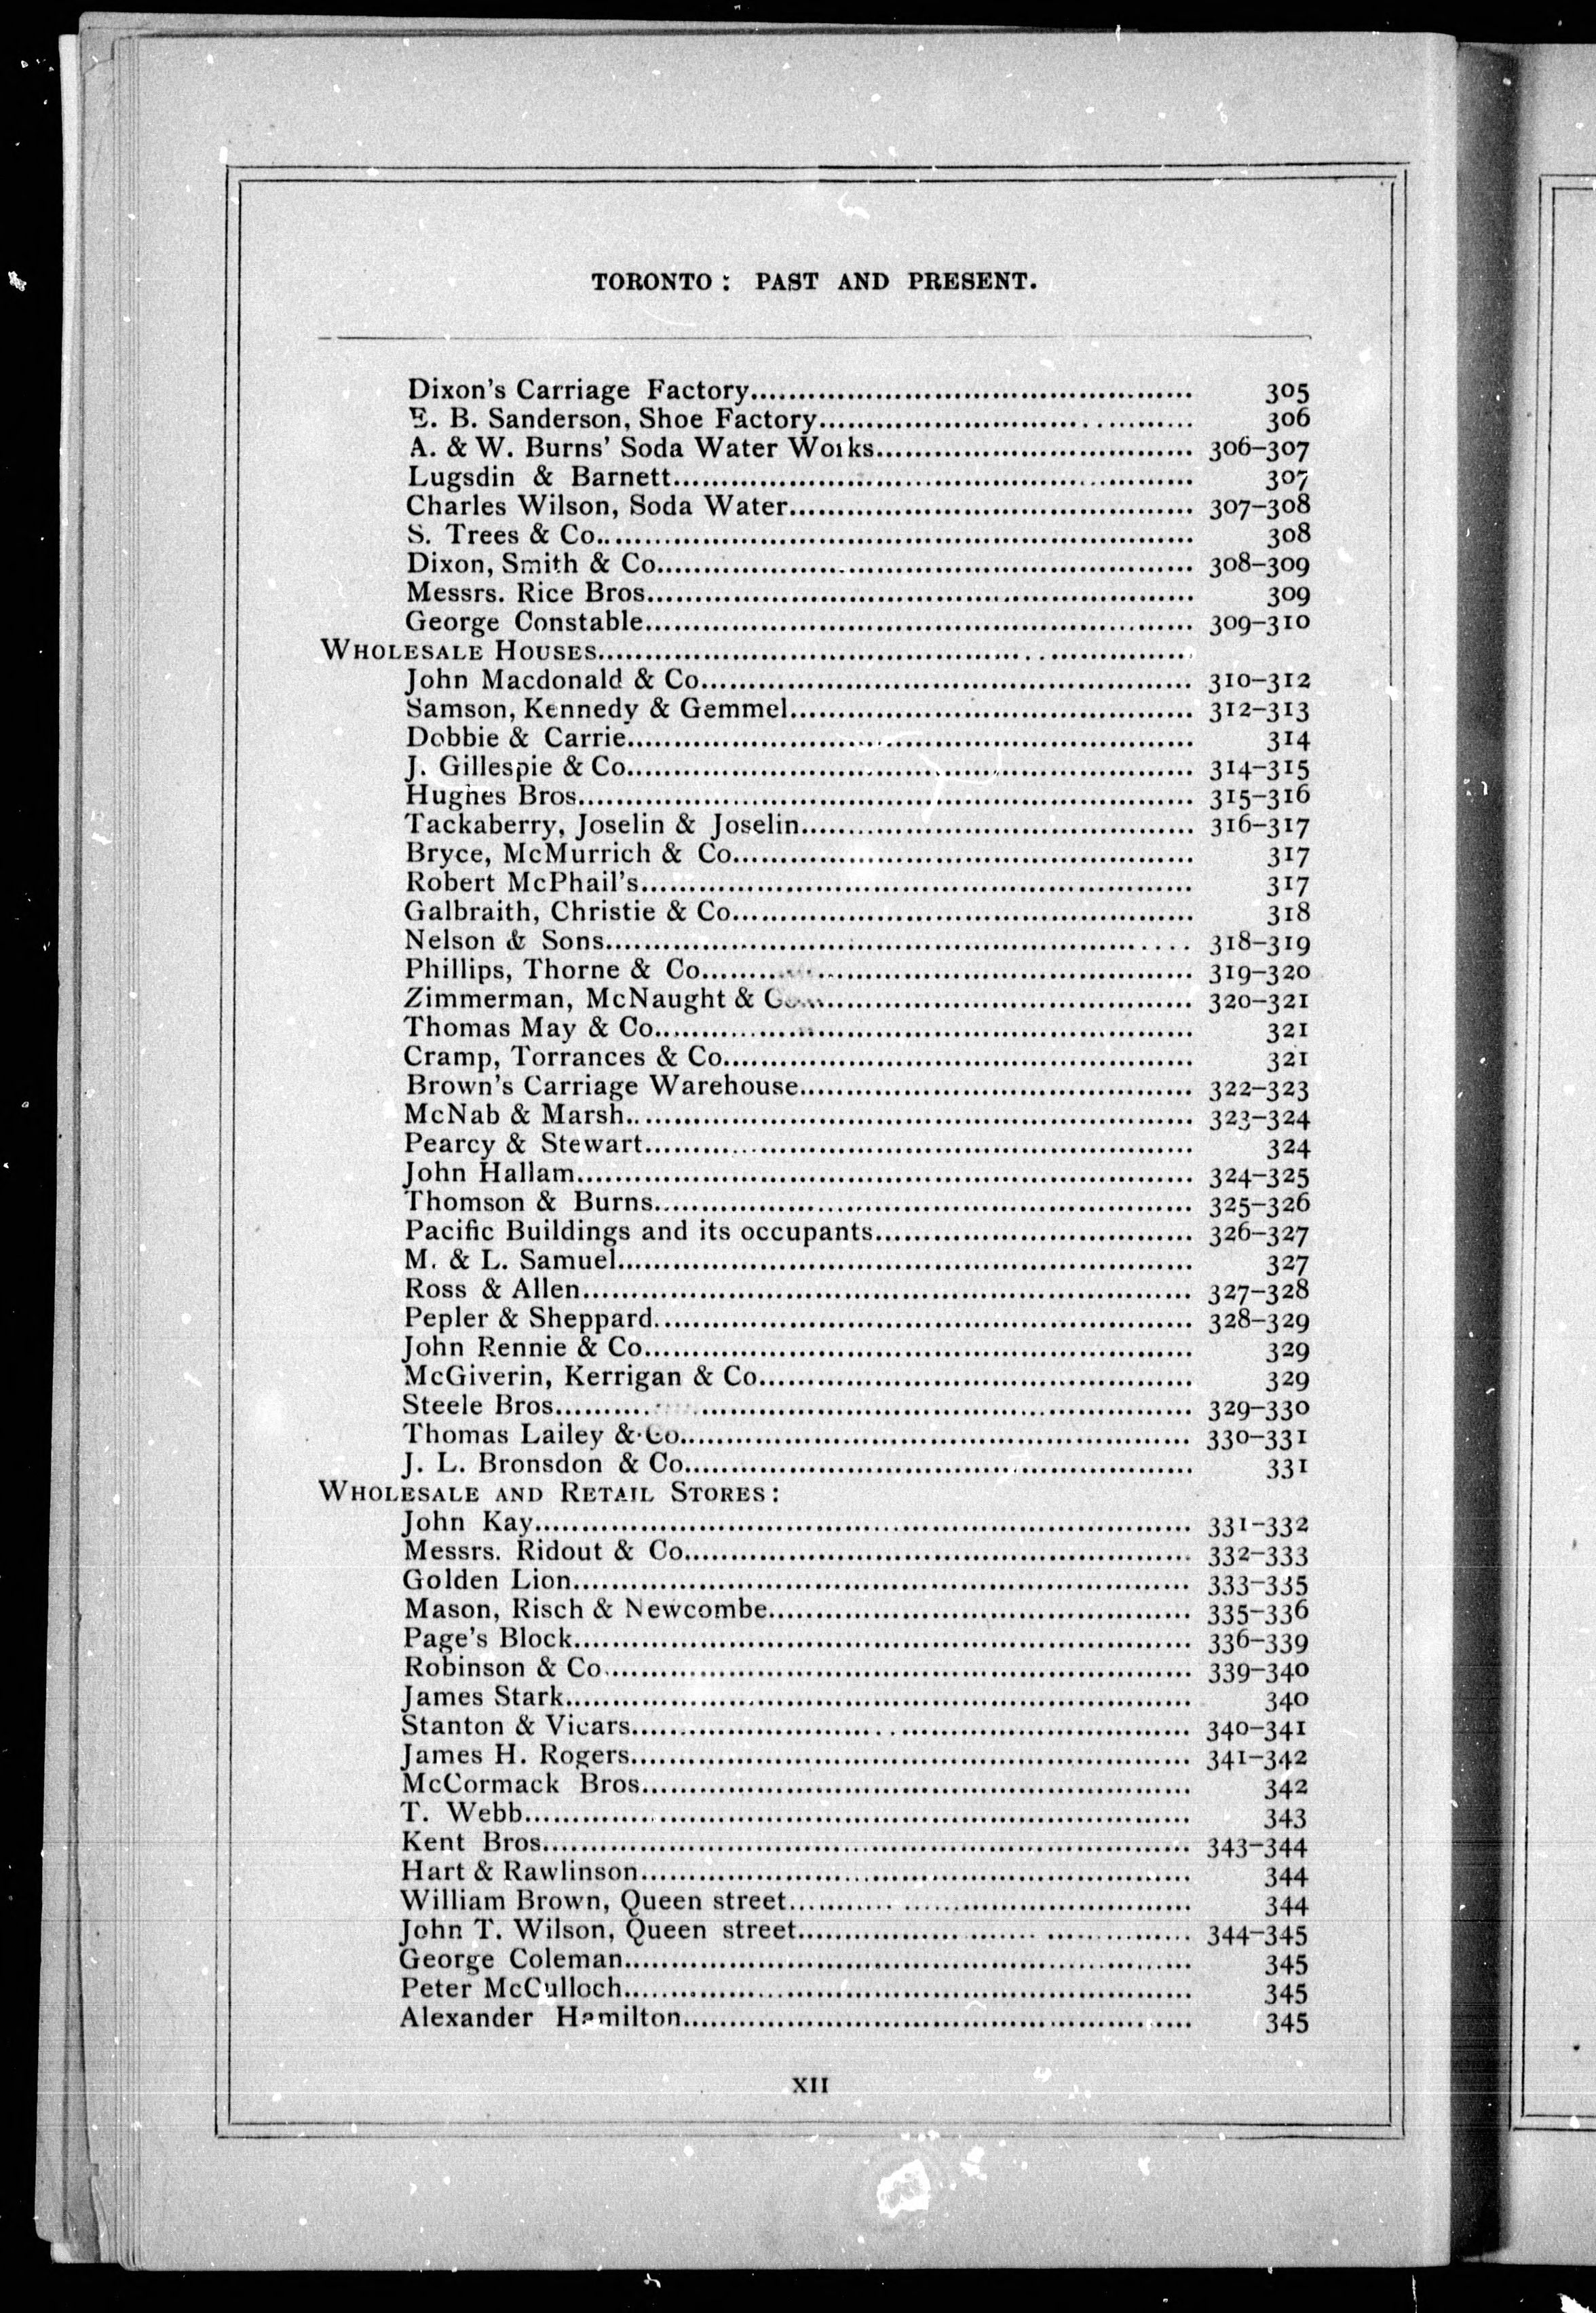 TORONTO: PAST AND PRESENT.
Dixon's Carriage Factory 305
E. B. Sanderson, Shoe Factory 306
A. & W. Burns' Soda Water Works 306–307
Lugsdin & Barnett 307
Charles Wilson, Soda Water 307–308
S. Trees & Co. 308
Dixon, Smith & Co. 308–309
Messrs. Rice Bros. 309
George Constable 309–310
WHOLESALE HOUSES
John Macdonald & Co. 310–312
Samson, Kennedy & Gemmel 312–313
Dobbie & Carrie 314
J. Gillespie & Co. 314–315
Hughes Bros. 315–316
Tackaberry, Joselin & Joselin 316–317
Bryce, McMurrich & Co. 317
Robert McPhail's 317
Galbraith, Christie & Co. 318
Nelson & Sons 318–319
Phillips, Thorne & Co. 319–320
Zimmerman, McNaught & Co. 320–321
Thomas May & Co. 321
Cramp, Torrances & Co. 321
Brown's Carriage Warehouse 322–323
McNab & Marsh 323–324
Pearcy & Stewart 324
John Hallam 324–325
Thomson & Burns 325–326
Pacific Buildings and its occupants 326–327
M. & L. Samuel 327
Ross & Allen 327–328
Pepler & Sheppard 328–329
John Rennie & Co. 329
McGiverin, Kerrigan & Co. 329
Steele Bros. 329–330
Thomas Lailey & Co. 330–331
J. L. Bronsdon & Co. 331
WHOLESALE AND RETAIL STORES:
John Kay 331–332
Messrs. Ridout & Co. 332–333
Golden Lion 333–335
Mason, Risch & Newcombe 335–336
Page's Block 336–339
Robinson & Co. 339–340
James Stark 340
Stanton & Vicars 340–341
James H. Rogers 341–342
McCormack Bros. 342
T. Webb 343
Kent Bros. 343–344
Hart & Rawlinson 344
William Brown, Queen street 344
John T. Wilson, Queen street 344–345
George Coleman 345
Peter McCulloch 345
Alexander Hamilton 345
XII